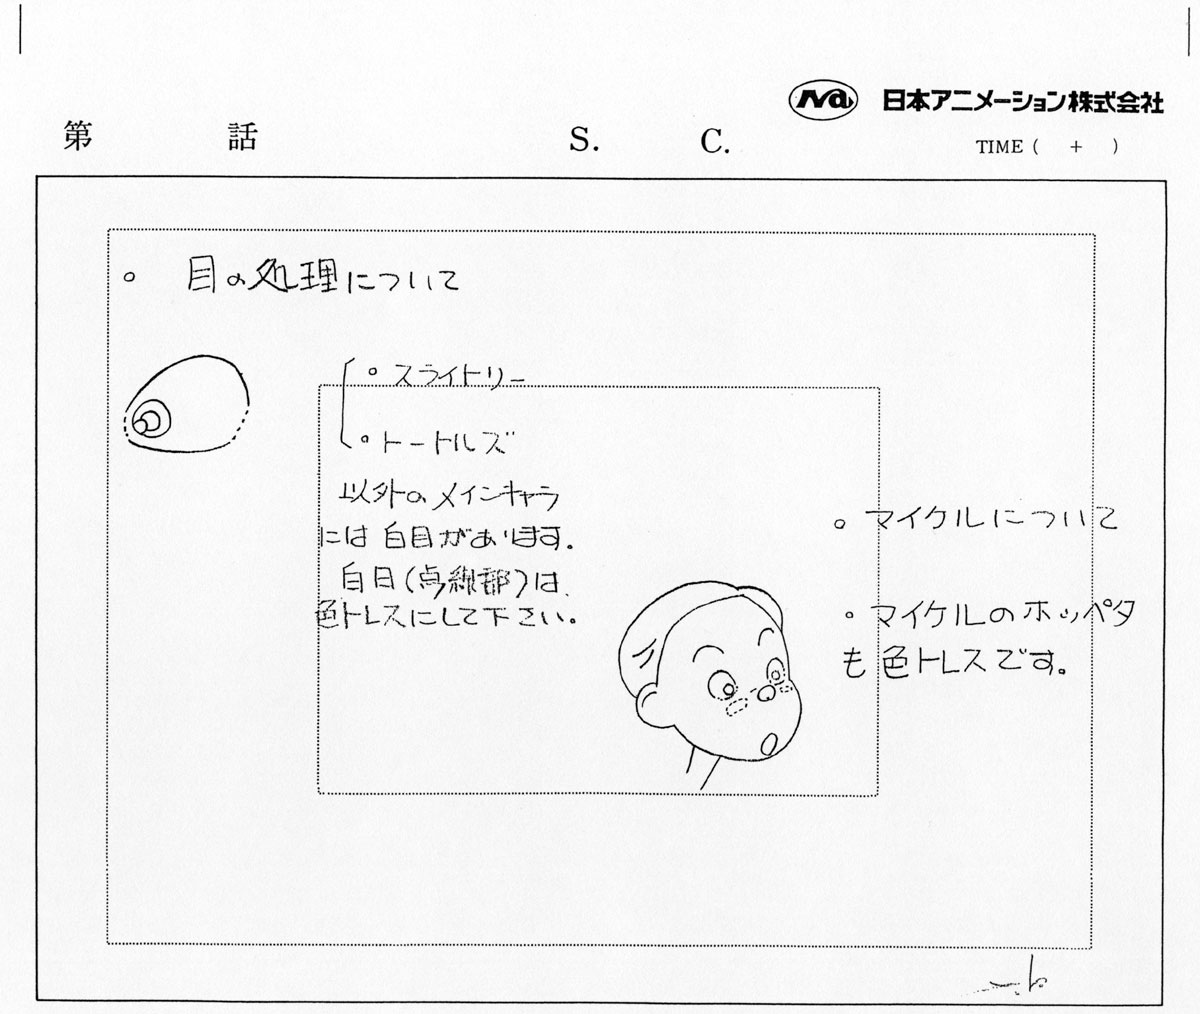 Na 日本アニメーション株式会社
第 話 S. C. TIME ( + )
。 目の処理について
。スライトリー
。トートルズ
以外のメインキャラ
には白目があります。
白目(点線部)は、
色トレスにして下さい。
。マイケルについて
。マイケルのホッペタ
も色トレスです。